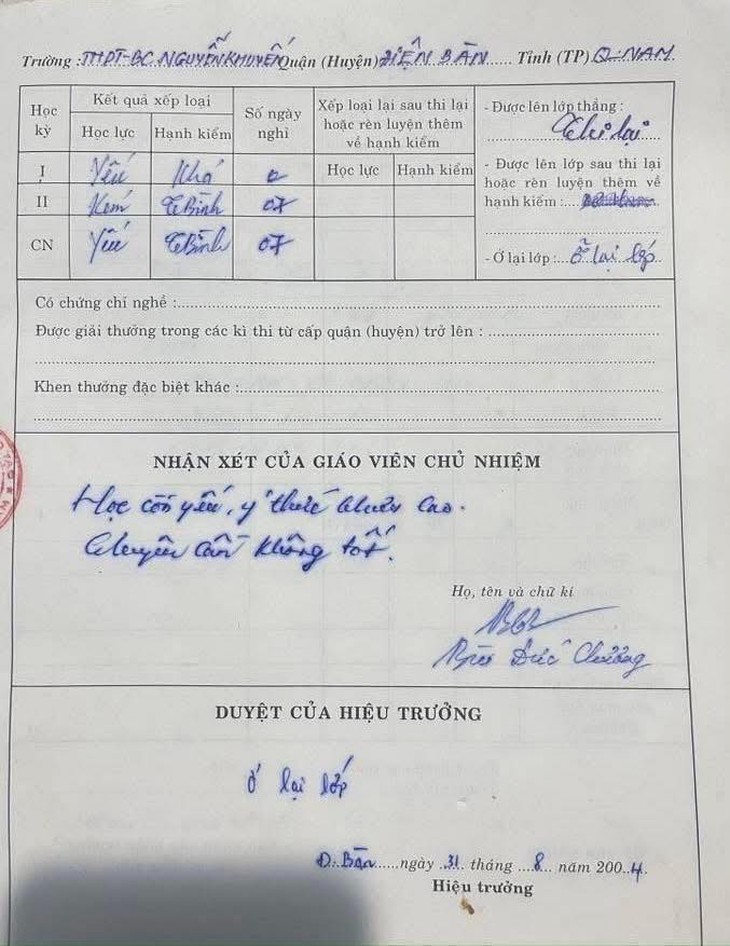 Trường : THPT-BC NGUYỄN KHUYẾN Quận (Huyện) ĐIỆN BÀN ..... Tỉnh (TP) Q. NAM
Học kỳ
Kết quả xếp loại
Số ngày nghỉ
Xếp loại lại sau thi lại hoặc rèn luyện thêm về hạnh kiểm
Học lực
Hạnh kiểm
Học lực
Hạnh kiểm
I Yếu Khá 0
II Kém T Bình 07
CN Yếu T Bình 07
- Được lên lớp thẳng :
Thi lại
- Được lên lớp sau thi lại
hoặc rèn luyện thêm về
hạnh kiểm :
- Ở lại lớp : Ở lại lớp
Có chứng chỉ nghề :
Được giải thưởng trong các kì thi từ cấp quận (huyện) trở lên :
Khen thưởng đặc biệt khác :
NHẬN XÉT CỦA GIÁO VIÊN CHỦ NHIỆM
Học còn yếu, ý thức chưa cao.
Chuyên cần không tốt.
Họ, tên và chữ kí
Đức Chương
DUYỆT CỦA HIỆU TRƯỞNG
Ở lại lớp
Đ. Bàn ngày 31 tháng 8 năm 2004
Hiệu trưởng